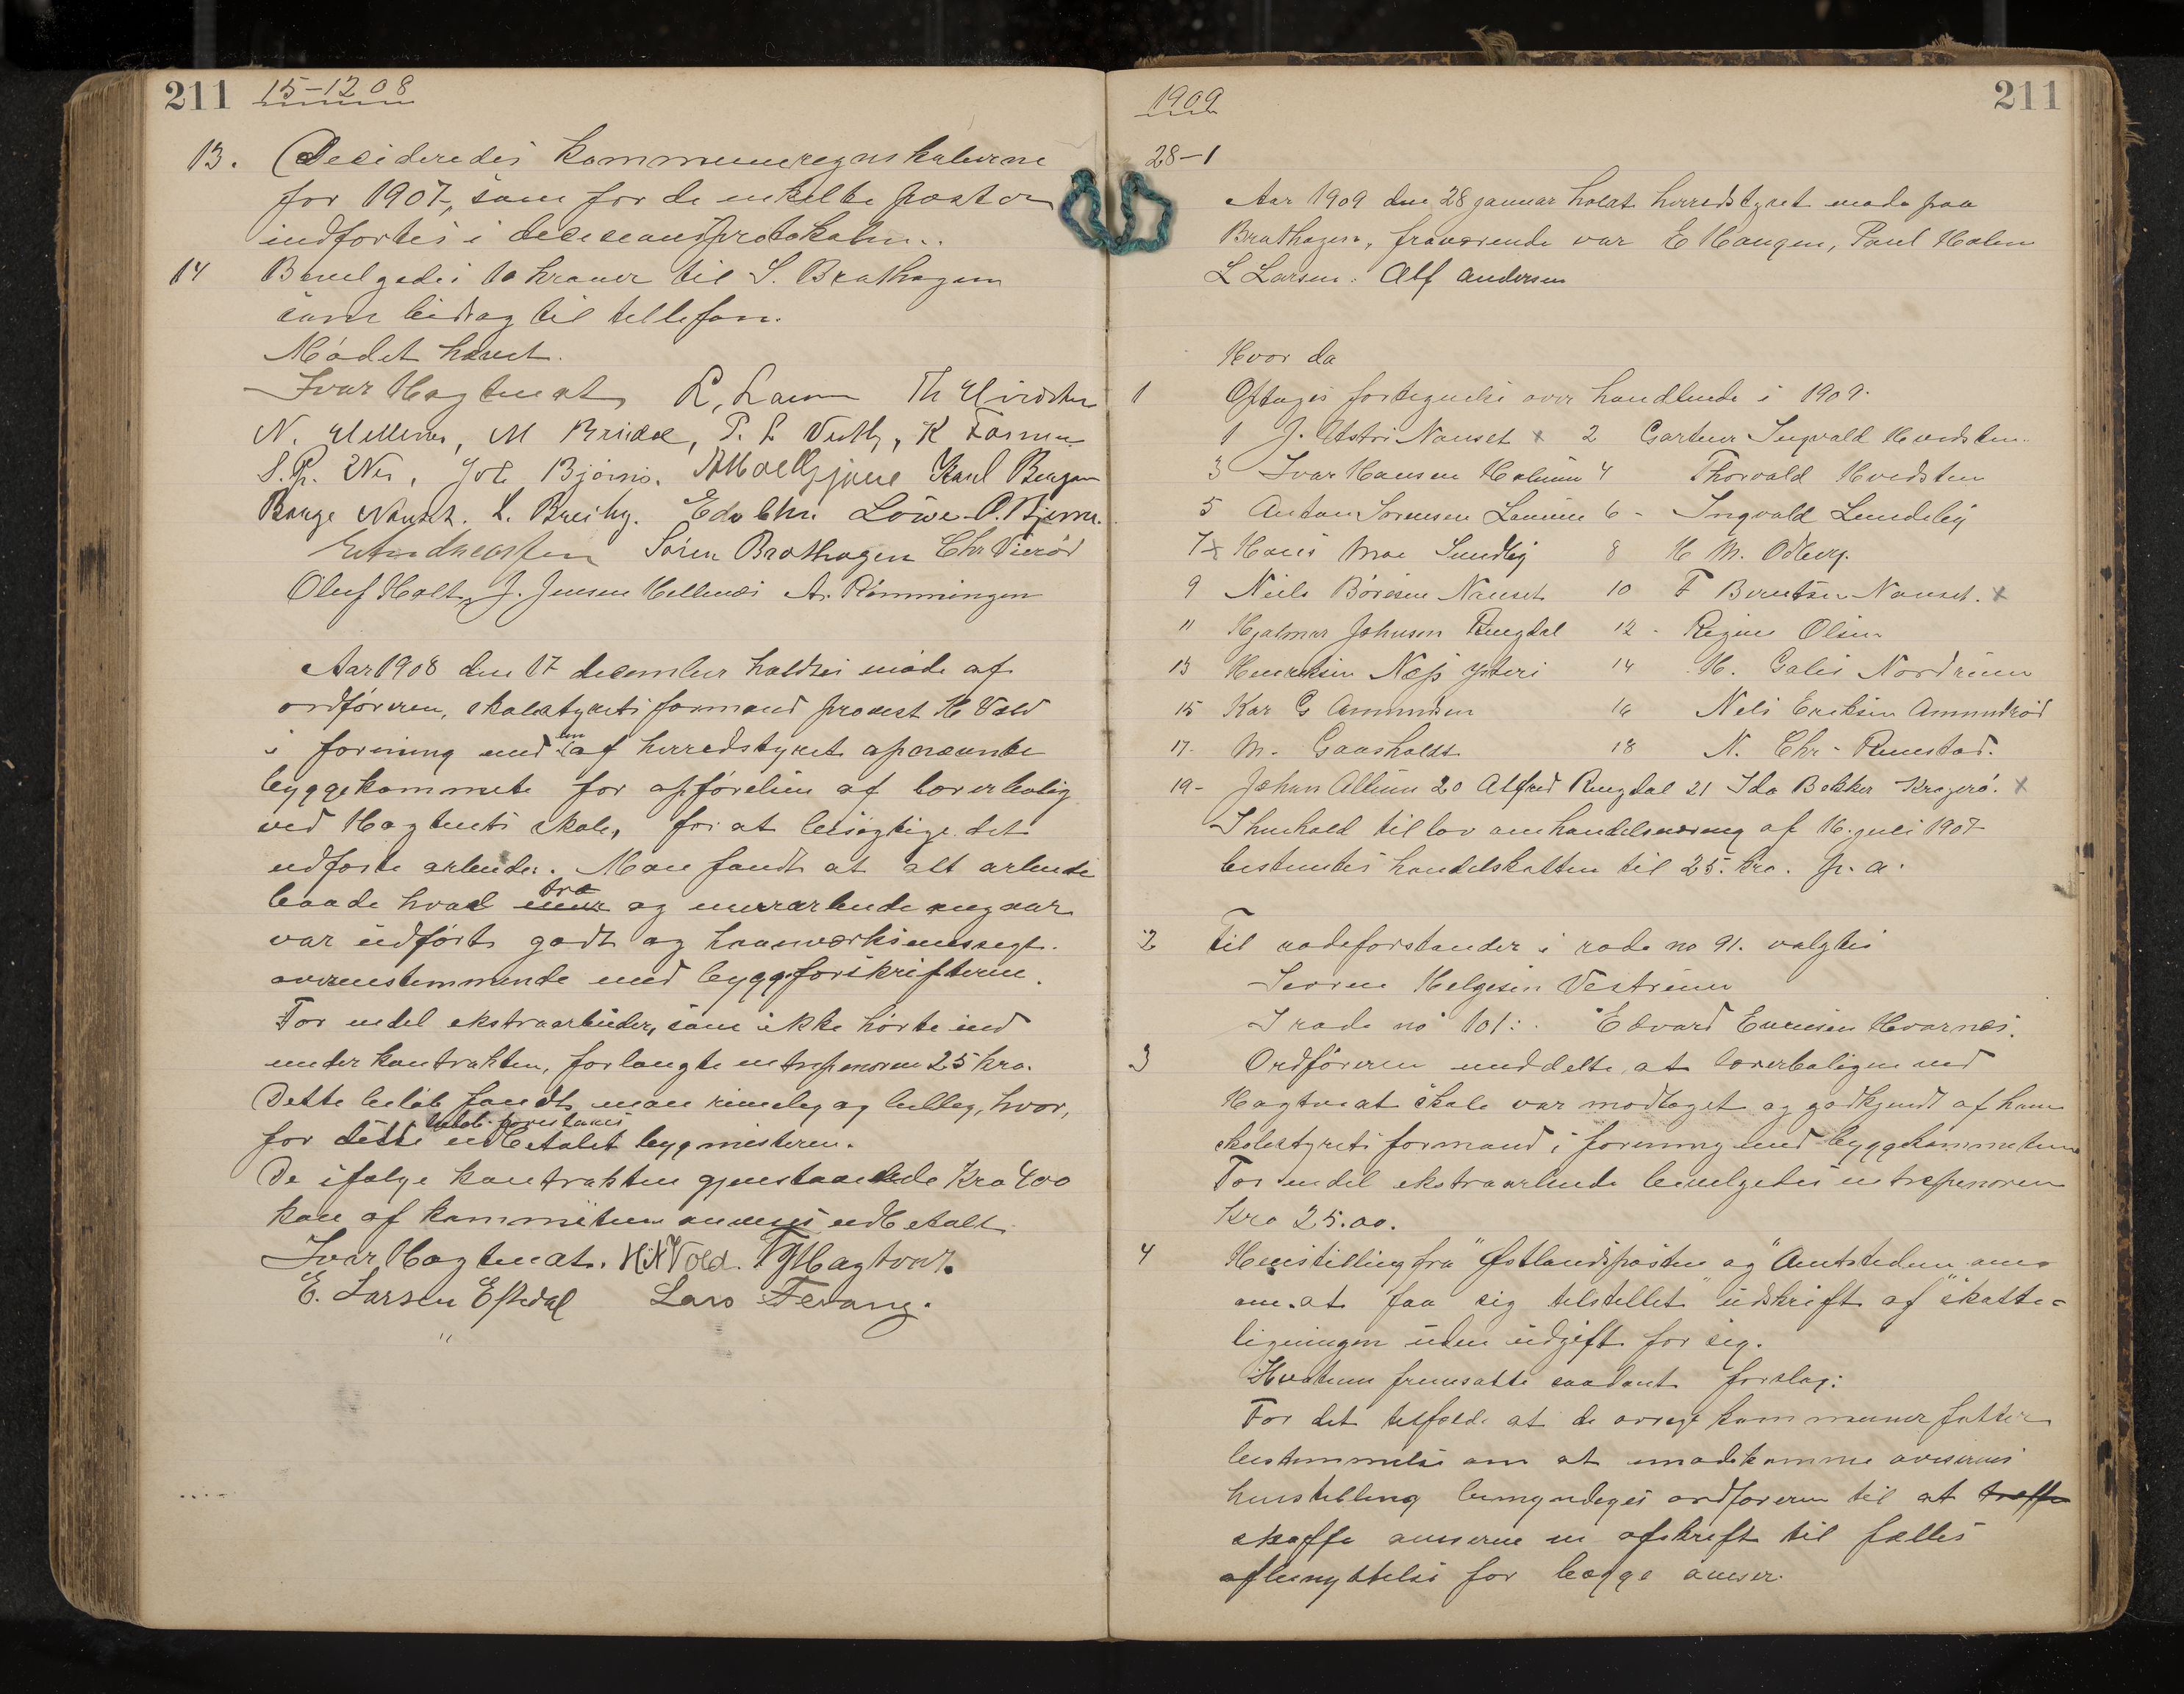 211 15-12 08
13. Decideredes kommuneregnskaberne
for 1907, som for de enkelte poster
indførtes i decisionsprotokolen.
14 Bevilgedes 10 kroner til S. Brathagen
som bidrag til tellefon.
Mødet hævet.
Ivar Hagtveat L. Larsen Th Hvidsten
N. M P. L K
S. P. Joh Bjørnø. Karl Bergan
Børge Nauset. L. Breiby. Edv Chr Löwe O. Bjerva.
Søren Brathagen Chr Vierød
Oluf Holt, J. Jensen Hellenæs A. Rømmingen
Aar 1908 den 17 december holdtes møde af
ordføreren, skolestyrets formand provest H Vold
i forening med den af herredstyret opnævnte
byggekommete for opførelsen af lærerbolig
ved Hagtvets skole, for at besigtige det
udførte arbeide. Man fandt at alt arbeide
baade hvad mur træ og murrarbeide angaar
var udført godt og haanverksmessigt
overenstemmende med byggeforskrifterne.
For endel ekstraarbeider, som ikke hørte ind
under kontrakten, forlangte entreprenøren 25 kro.
Dette beløb fandt man rimelig og billig, hvor,
for dette beløb udbetalet bygmesteren.
De ifølge kontrakten gjenstaaende Kro 400
kan af kommiteen anvises udbetalt
Ivar Hagtveat. H Vold. Hagtvet.
E. Larsen Eftedal Lars Fevang.
"
1909 211
28-1
Aar 1909 den 28 januar holdt herredstyret møde paa
Brathagen, fraværende var E Haugen, Paul Holm
L Larsen. Alf Andersen
Hvor da
1 Optages fortegnelse over handlende i 1909.
1 J. Nauset x 2 Gartner Ingvald Hvidsten
3 Ivar Hansen Holmen 4 Thorvald Hvidsten
5 Anton Sørensen 6 - Ingvald Lundeby
7 x Hans Moe Sundby 8 H M. Odberg.
9 Niels Børesen Nauset 10 F Berntsen Nauset. x
11 Hjalmar Johnsen Ringdal 12 - Regine Olsen
13 Henriksen Næs ysteri 14 H. Galis Nordrum
15 Kar G Amundsen 16 Nils Eriksen Amundrød
17. M. Gaasholdt 18 N. Chr. Rimstad.
19- Johan Allum 20 Alfred Ringdal 21 Ida Bekker Kragerø. x
I henhold til lov om handelsnæring af 16. juli 1907
bestemtes handelskatten til 25. kro. p. a.
2 Til rodeforstander i rode no 91. valgtes
Søren Helgesen Vestrum
I rode no 101: Edvard Evensen Hvarnes.
3 Ordføreren meddelte, at lærerboligen ved
Hagtveat skole var modtaget og godkjendt af ham
skolestyrets formand i forening med byggekommeteen
For endel ekstraarbeide bevilgedes entreprenøren
Kro 25.00.
4 Henstilling fra "Østlandsposten og "Amtstidende om
om at faa sig tilstillet udskrift af skatte=
ligningen uden udgift for sig.
Hvatum fremsatte saadant forslag:
For det tilfælde at de øvrige kommuner fatter
bestemmelse om at imødekomme avisernes
henstilling bemyndiges ordføreren til at træffe
skaffe aviserne en afskrift til fælles
afbenyttelse for begge aviser.